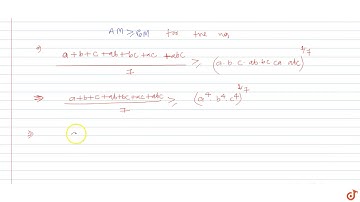 AM ≥ GM for the no.
⇒ (a+b+c+ab+bc+ac+abc)/7 ≥ (a·b·c·ab·bc·ca·abc)^1/7
⇒ (a+b+c+ab+bc+ac+abc)/7 ≥ (a^4·b^4·c^4)^1/7
⇒